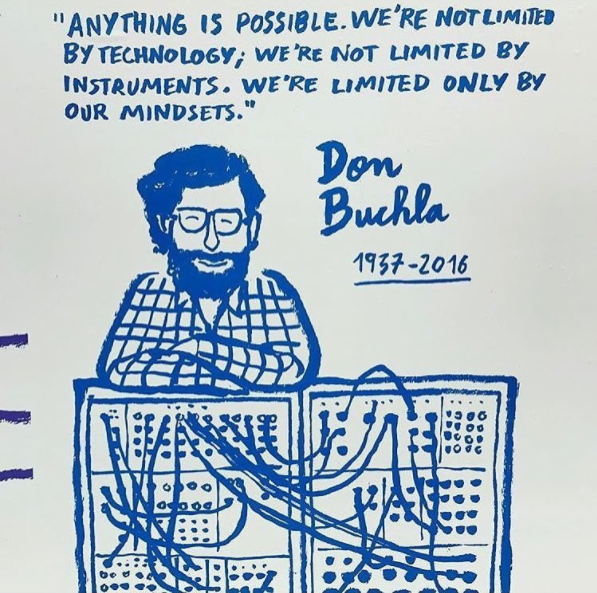 "ANYTHING IS POSSIBLE. WE'RE NOT LIMITED
BY TECHNOLOGY; WE'RE NOT LIMITED BY
INSTRUMENTS. WE'RE LIMITED ONLY BY
OUR MINDSETS."
Don
Buchla
1937-2016